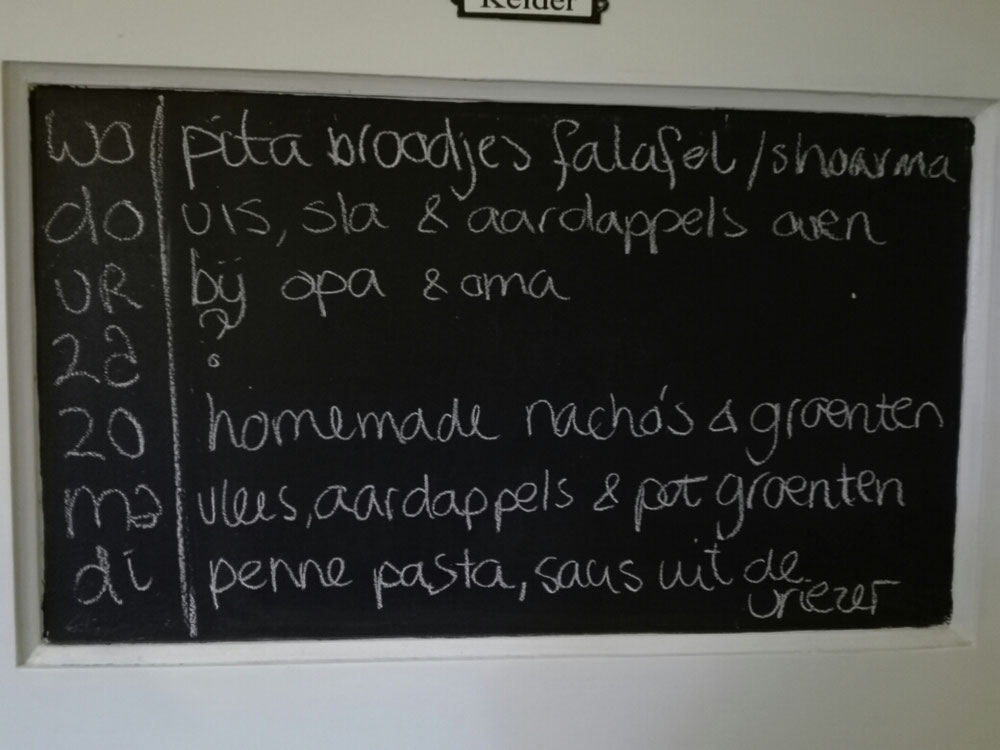 Kelder
wo pita broodjes falafel /shoarma
do vis, sla & aardappels oven
VR bij opa & oma
za ?
zo homemade nacho's & groenten
ma vlees, aardappels & pot groenten
di penne pasta, saus uit de
vriezer